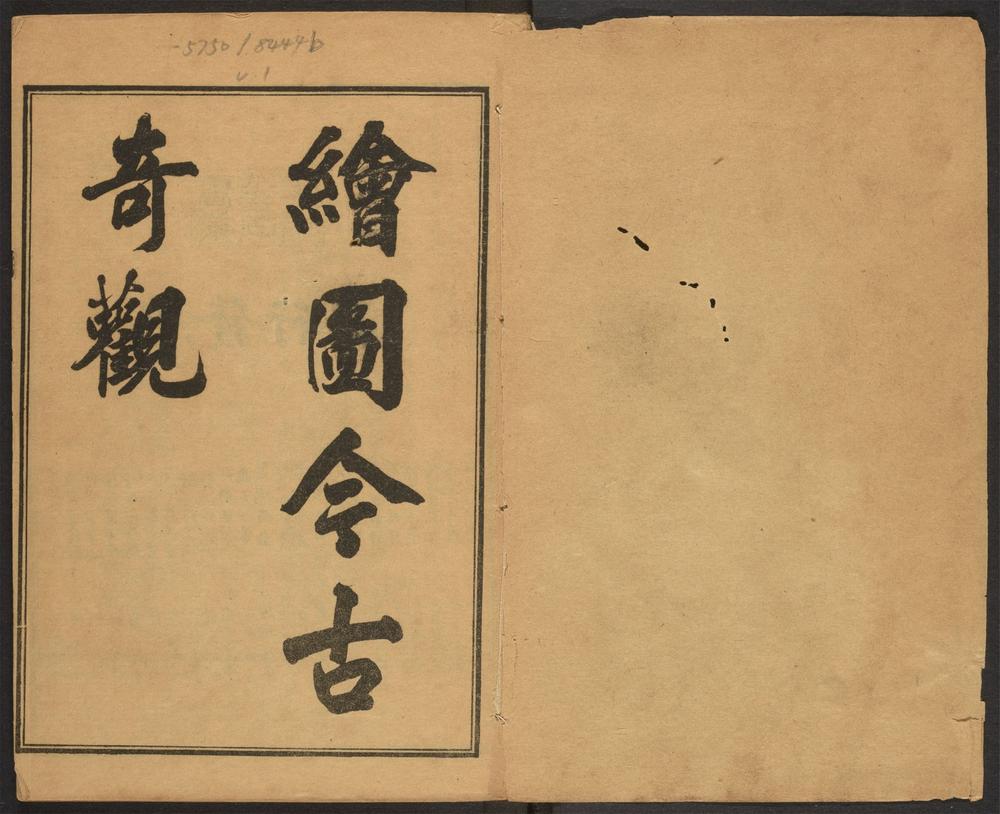 5750/8444b
v.1
繪圖今古
奇觀